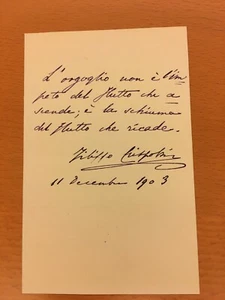 L'orgoglio non è l'im-
peto del flutto che a-
scende; è la schiuma
del flutto che ricade.
Filippo Crispolti
11 Decembre 1903